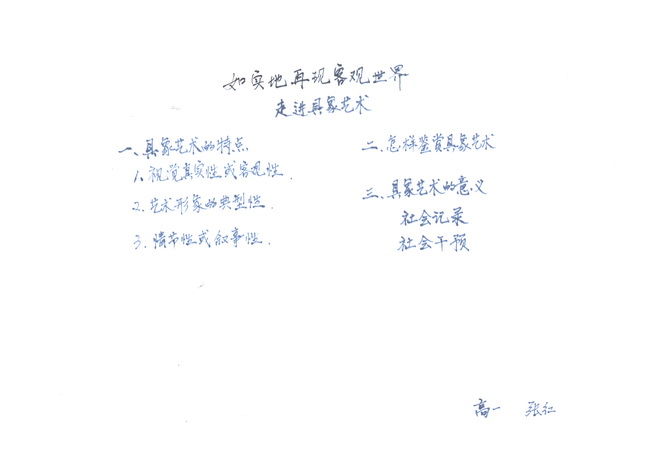 如实地再现客观世界
走进具象艺术
一、具象艺术的特点
1、视觉真实性或客观性.
2、艺术形象的典型性.
3、情节性或叙事性.
二、怎样鉴赏具象艺术
三、具象艺术的意义
社会记录
社会干预
高一 张红